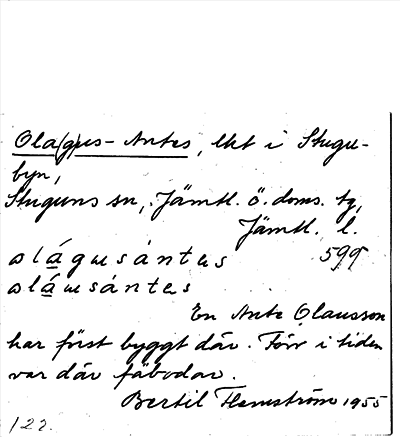 Ola(g)us-Antes, lht i Stugu-
byn,
Stuguns sn, Jämtl. ö. doms. tg,
Jämtl. l.
olágusántes 599
oláusántes
En Ante Olausson
har först byggt där. Förr i tiden
var där fäbodar.
Bertil Flemström 1955
122.